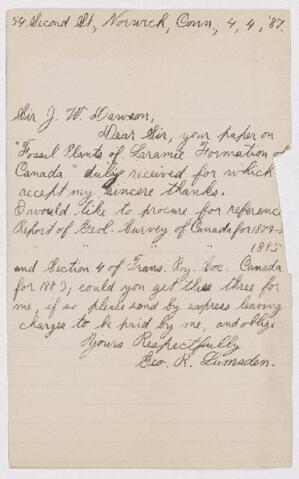 54 Second St, Norwich, Conn, 4, 4, '87.
Sir J. W. Dawson,
Dear Sir, your paper on
"Fossil Plants of Laramie Formation of
Canada" duly received for which
accept my sincere thanks.
I would like to procure for reference
Report of Geol. Survey of Canada for
" " " " 1885
and Section 4 of Trans. Roy. Soc. Canada
for could you get these three for
me, if so please send by express leaving
charges to be paid by me, and oblige
Yours Respectfully
Geo. R. Lumsden.